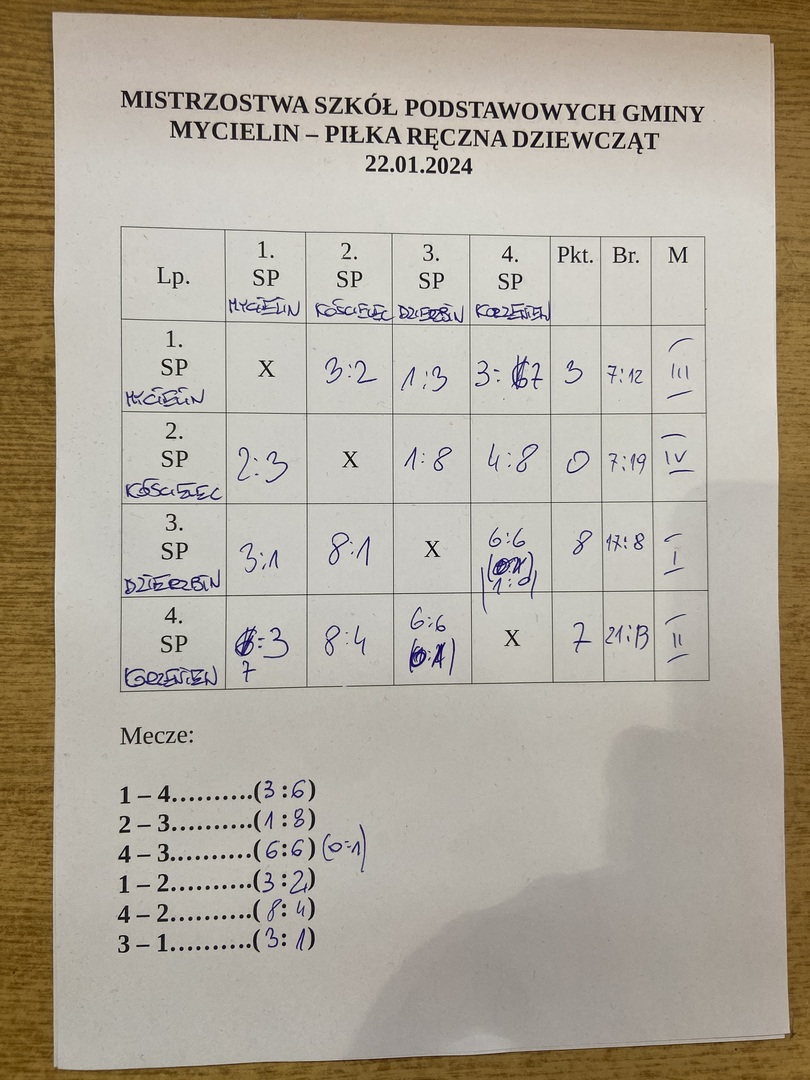 MISTRZOSTWA SZKÓŁ PODSTAWOWYCH GMINY
MYCIELIN – PIŁKA RĘCZNA DZIEWCZĄT
22.01.2024
Lp. 1. SP MYCIELIN 2. SP KOŚCIELEC 3. SP DZIERZBIN 4. SP KORZENIEW Pkt. Br. M
1. SP MYCIELIN X 3:2 1:3 3:7 3 7:12 III
2. SP KOŚCIELEC 2:3 X 1:8 4:8 0 7:19 IV
3. SP DZIERZBIN 3:1 8:1 X 6:6 (1:0) 8 17:8 I
4. SP 7:3 8:4 6:6 X 7 21:13 II
Mecze:
1 – 4..........(3:6)
2 – 3..........(1:8)
4 – 3..........(6:6) (0:1)
1 – 2..........(3:2)
4 – 2..........(8:4)
3 – 1..........(3:1)